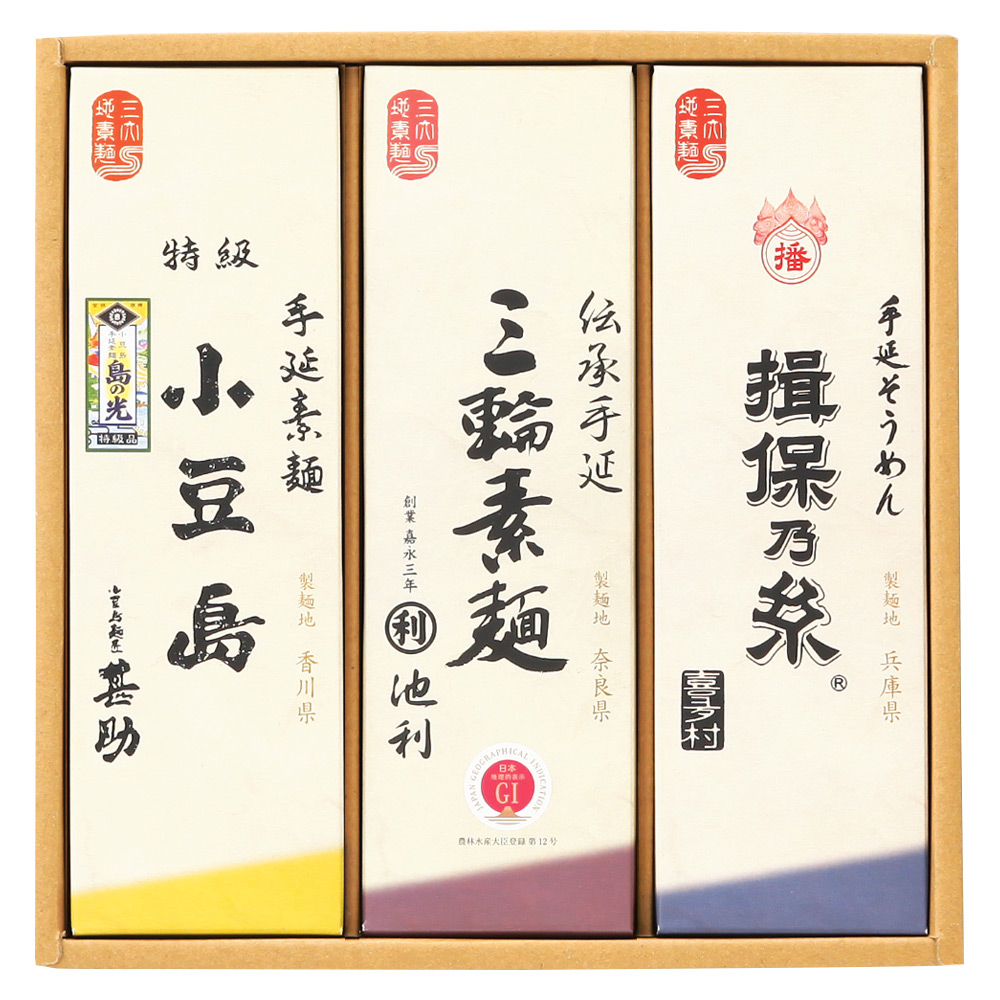 三大
地素麺
特級
手延素麺
小豆島
登録 商標
小豆島
手延素麺
島の光
特級品
製麺地 香川県
甚助
三大
地素麺
伝承手延
三輪素麺
製麺地 奈良県
創業 嘉永三年
利
池利
JAPAN GEOGRAPHICAL INDICATION
日本
地理的表示
GI
農林水産大臣登録 第12号
三大
地素麺
播
手延そうめん
揖保乃糸®
製麺地 兵庫県
喜多村